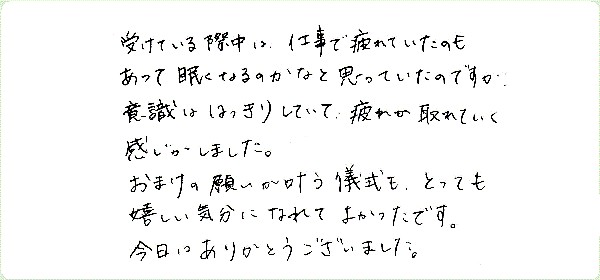 受けている際中は、仕事で疲れていたのも
あって眠くなるのかなと思っていたのですが、
意識ははっきりしていて、疲れが取れていく
感じがしました。
おまけの願いが叶う儀式も、とっても
嬉しい気分になれてよかったです。
今日はありがとうございました。